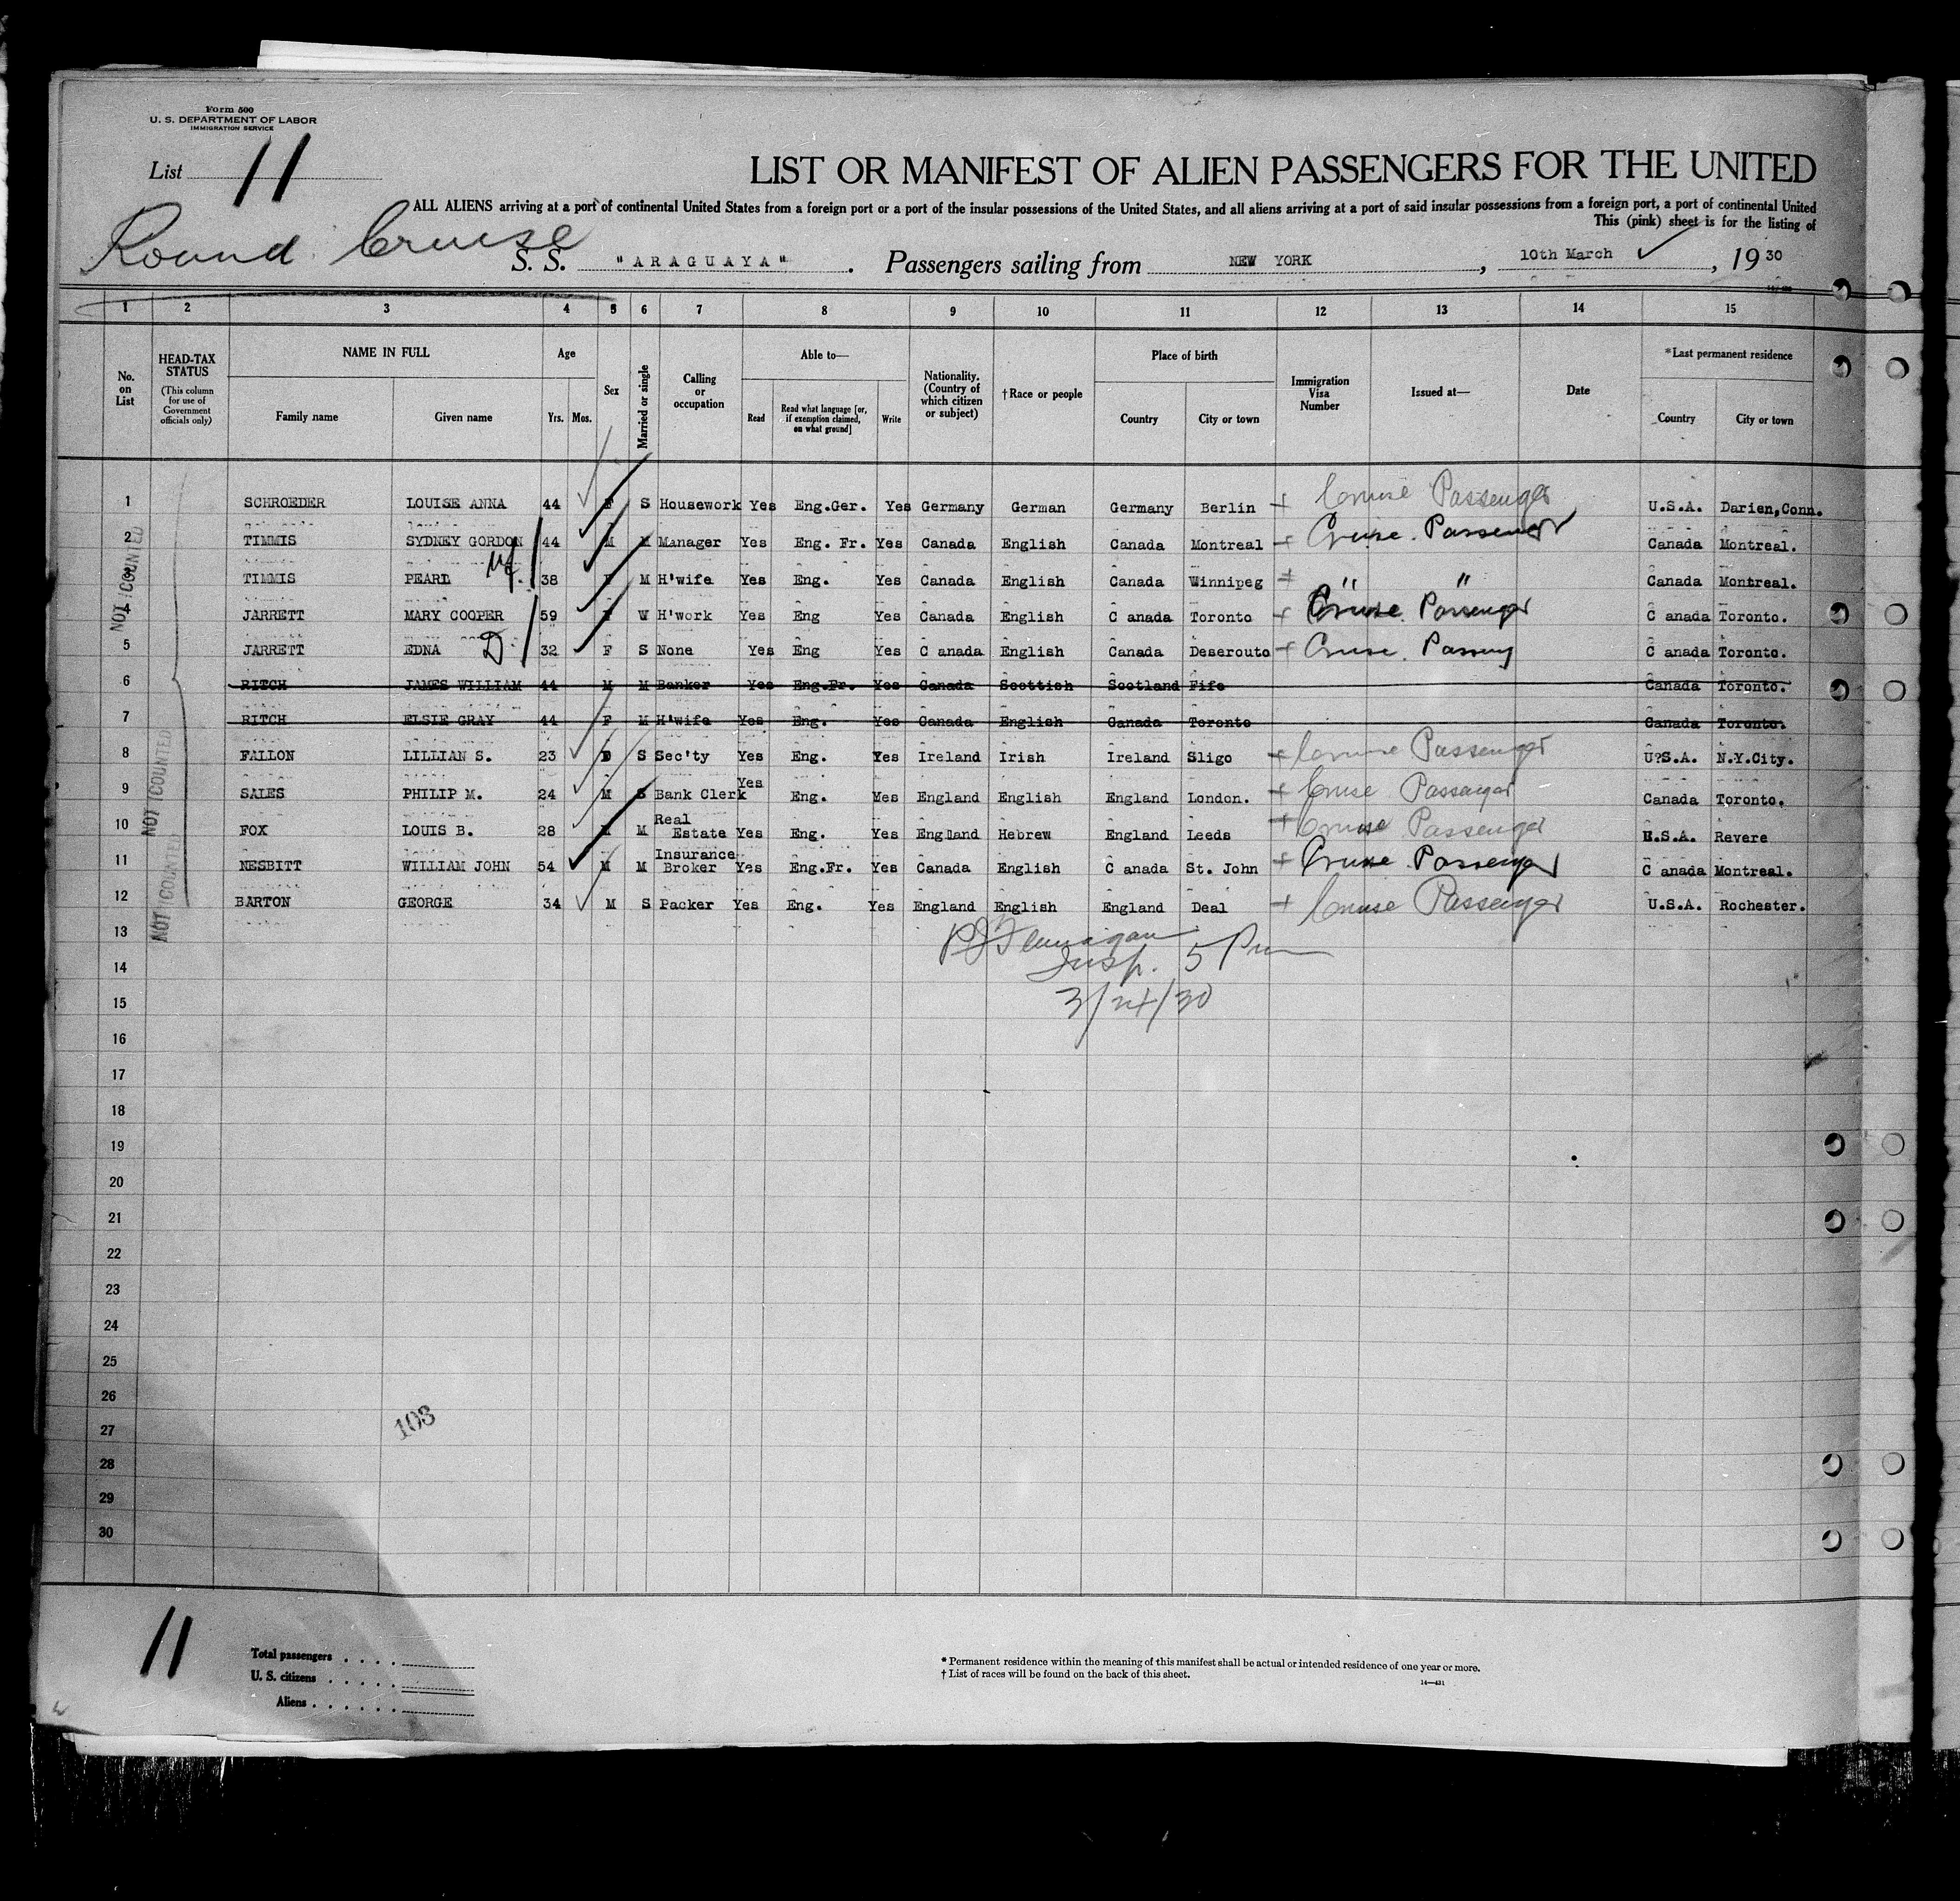 Form 500
U. S. DEPARTMENT OF LABOR
IMMIGRATION SERVICE
List 11
LIST OR MANIFEST OF ALIEN PASSENGERS FOR THE UNITED
ALL ALIENS arriving at a port of continental United States from a foreign port or a port of the insular possessions of the United States, and all aliens arriving at a port of said insular possessions from a foreign port, a port of continental United
This (pink) sheet is for the listing of
Round Cruise
S. S. "ARAGUAYA" . Passengers sailing from NEW YORK , 10th March , 19 30
1 2 3 4 5 6 7 8 9 10 11 12 13 14 15
No. on List
HEAD-TAX STATUS (This column for use of Government officials only)
NAME IN FULL Family name Given name
Age Yrs. Mos.
Sex
Married or single
Calling or occupation
Able to— Read Read what language [or, if exemption claimed, on what ground] Write
Nationality. (Country of which citizen or subject)
†Race or people
Place of birth Country City or town
Immigration Visa Number
Issued at—
Date
*Last permanent residence Country City or town
1 SCHROEDER LOUISE ANNA 44 F S Housework Yes Eng.Ger. Yes Germany German Germany Berlin Cruise Passenger U.S.A. Darien,Conn.
2 TIMMIS SYDNEY GORDON 44 M M Manager Yes Eng. Fr. Yes Canada English Canada Montreal Cruise Passenger Canada Montreal.
3 TIMMIS PEARL 38 F M H'wife Yes Eng. Yes Canada English Canada Winnipeg " " Canada Montreal.
4 JARRETT MARY COOPER 59 F W H'work Yes Eng Yes Canada English C anada Toronto Cruise Passenger C anada Toronto.
5 JARRETT EDNA D. 32 F S None Yes Eng Yes C anada English Canada Deserouto Cruise Passeng C anada Toronto.
6 RITCH JAMES WILLIAM 44 M M Banker Yes Eng.Fr. Yes Canada Scottish Scotland Fife Canada Toronto.
7 RITCH ELSIE GRAY 44 F M H'wife Yes Eng. Yes Canada English Canada Toronto Canada Toronto.
8 FALLON LILLIAN S. 23 S Sec'ty Yes Eng. Yes Ireland Irish Ireland Sligo Cruise Passenger U?S.A. N.Y.City.
9 SALES PHILIP M. 24 M S Bank Clerk Yes Eng. Yes England English England London. Cruise Passenger Canada Toronto.
10 FOX LOUIS B. 28 M M Real Estate Yes Eng. Yes England Hebrew England Leeds Cruise Passenger U.S.A. Revere
11 NESBITT WILLIAM JOHN 54 M M Insurance Broker Yes Eng.Fr. Yes Canada English C anada St. John Cruise Passenger C anada Montreal.
12 BARTON GEORGE 34 M S Packer Yes Eng. Yes England English England Deal Cruise Passenger U.S.A. Rochester.
NOT COUNTED
NOT COUNTED
NOT COUNTED
13
P J Flannagan
14
Insp. 5 Pm
15
3/24/30
16
17
18
19
20
21
22
23
24
25
26
27
103
28
29
30
11
Total passengers
U. S. citizens
Aliens
* Permanent residence within the meaning of this manifest shall be actual or intended residence of one year or more.
† List of races will be found on the back of this sheet.
14—431